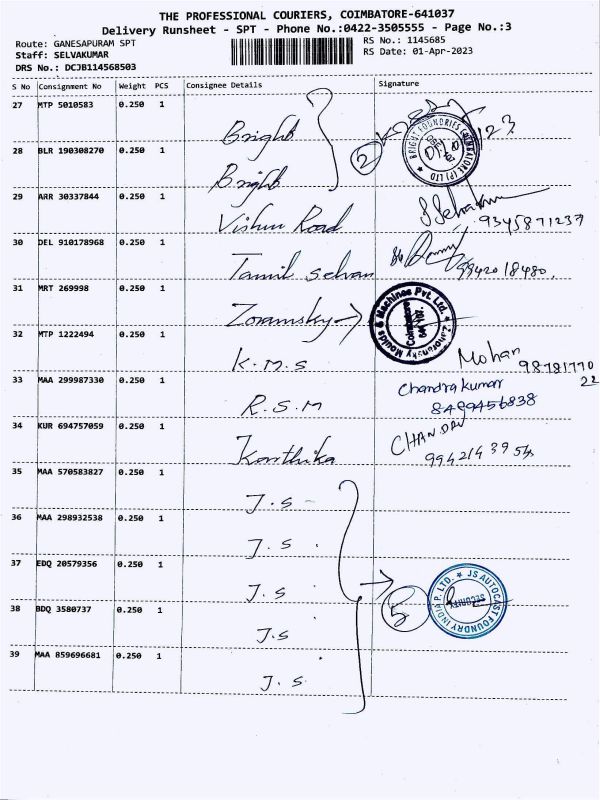 THE PROFESSIONAL COURIERS, COIMBATORE-641037
Delivery Runsheet - SPT - Phone No.:0422-3505555 - Page No.:3
Route: GANESAPURAM SPT
RS No.: 1145685
Staff: SELVAKUMAR
RS Date: 01-Apr-2023
DRS No.: DCJB114568503
S No Consignment No Weight PCS Consignee Details Signature
27 MTP 5010583 0.250 1 Bright
28 BLR 190308270 0.250 1 Bright
2
BRIGHT FOUNDRIES COIMBATORE (P) LTD
29 ARR 30337844 0.250 1 Vishnu Road
9345871237
30 DEL 910178968 0.250 1 Tamil Selvan
9942018480.
31 MRT 269998 0.250 1 Zoramsky
Zahoransky Moulds & Machines Pvt. Ltd.
Coimbatore
32 MTP 1222494 0.250 1 K.M.S
Mohan
98781770
22
33 MAA 299987330 0.250 1 R.S.M
Chandrakumar
8489456838
34 KUR 694757059 0.250 1 Karthika
CHANDRU
9942143954
35 MAA 570583827 0.250 1 J.S
36 MAA 298932538 0.250 1 J.S
37 EDQ 20579356 0.250 1 J.S
38 BDQ 3580737 0.250 1 J.S
5
JS AUTOCAST FOUNDRY INDIA P. LTD.
SECURITY
39 MAA 859696681 0.250 1 J.S